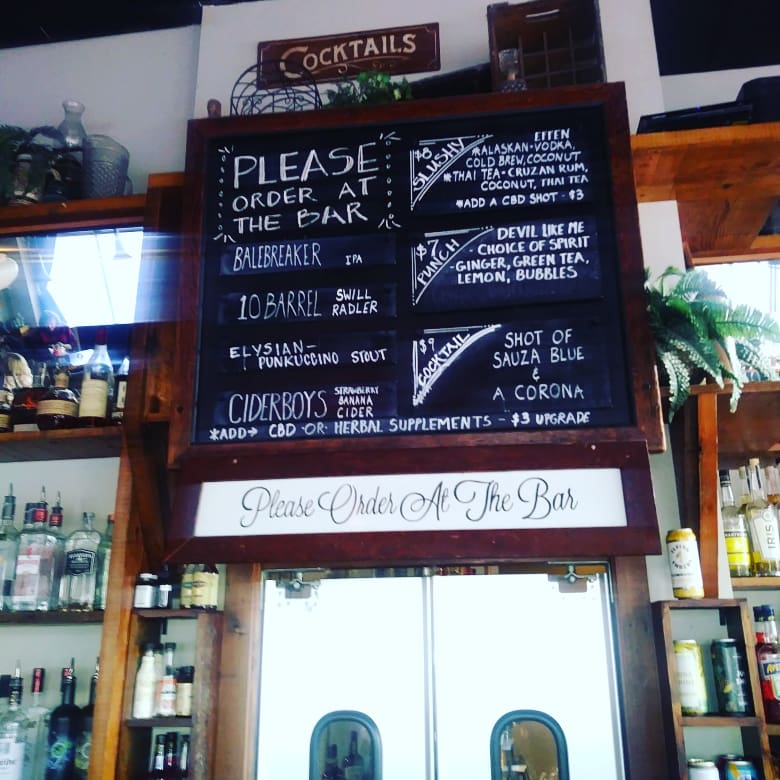 COCKTAILS
PLEASE
ORDER AT
THE BAR
BALEBREAKER IPA
10 BARREL SWILL
RADLER
ELYSIAN-
PUNKUCCINO STOUT
CIDERBOYS STRAWBERRY
BANANA
CIDER
$8 SLUSHY
EFFEN
*ALASKAN-VODKA,
COLD BREW, COCONUT
*THAI TEA-CRUZAN RUM,
COCONUT, THAI TEA
*ADD A CBD SHOT - $3
$7 PUNCH
DEVIL LIKE ME
- CHOICE OF SPIRIT
-GINGER, GREEN TEA,
LEMON, BUBBLES
$9 COCKTAIL
SHOT OF
SAUZA BLUE
&
A CORONA
*ADD→ CBD -OR- HERBAL SUPPLEMENTS - $3 UPGRADE
Please Order At The Bar